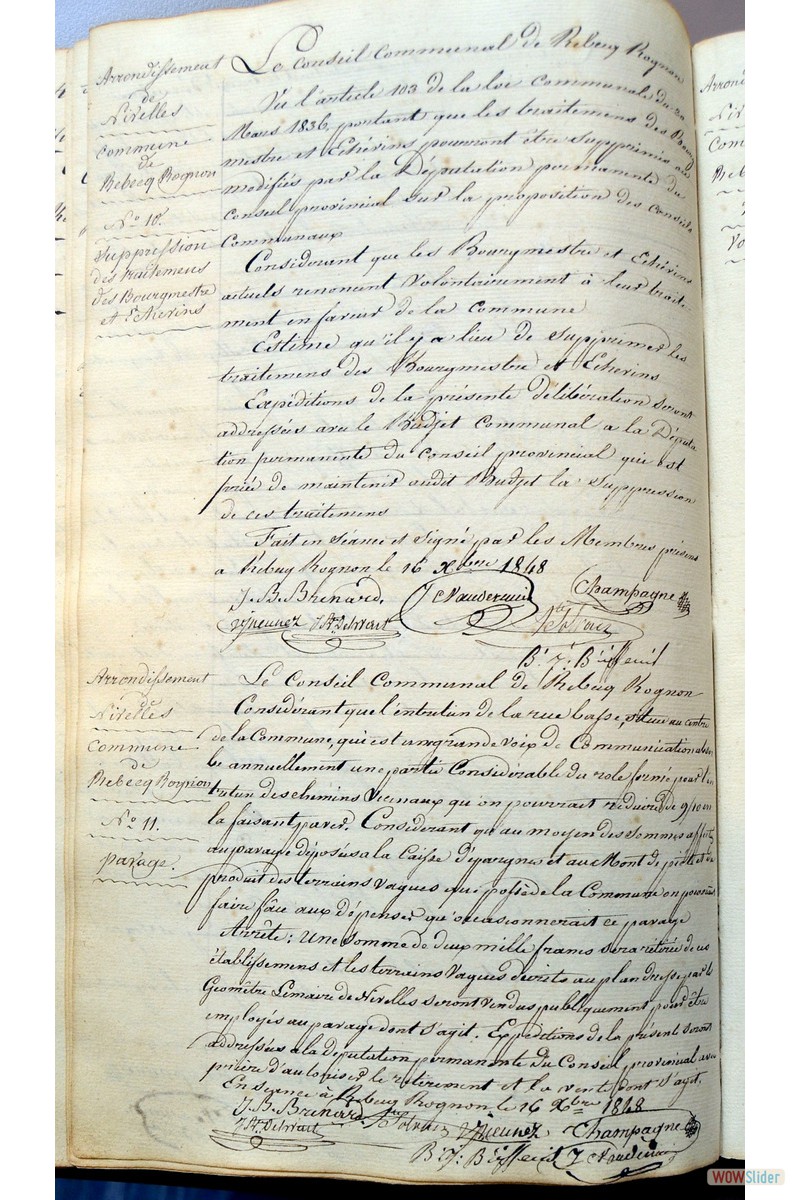 Arrondissement
de
Nivelles
Commune
de
Rebecq Rognon
No 10.
Suppression
des traitemens
des Bourgmestre
et Echevins
Le Conseil Communal de Rebecq Rognon
Vu l'article 103 de la loi Communale du 30
Mars 1836, portant que les traitemens des Bourg
mestre et Echevins pourront être supprimés ou
modifiés par la Députation permanente du
Conseil provincial sur la proposition des conseils
Communaux
Considerant que les Bourgmestre et Echevins
actuels renoncent volontairement à leur traite-
ment en faveur de la Commune
Estime qu'il y a lieu de supprimer les
traitemens des Bourgmestre et Echevins
Expéditions de la présente délibération seront
addressées avec le Budjet Communal a la Députa
tion permanente du Conseil provincial qui est
priée de maintenir audit Budjet la suppression
de ces traitemens
Fait en séance et signé par les Membres présens
a Rebecq Rognon le 16 Xbre 1848
J. B. Brenard. Champagne
J H Delwart
Arrondissement
de
Nivelles
Commune
de
Rebecq Rognon
No 11.
pavage.
Le Conseil Communal de Rebecq Rognon
Considérant que l'entretien de la rue basse, située au centre
de la Commune, qui est une grande voix de Communication absor
be annuellement une partie Considérable du role formé pour l'en
tretien des chemins Vicinaux qu'on pourrait réduire de 9/10 en
la faisant paver. Considerant qu'au moyen des sommes affectées
au pavage déposées a la Caisse d'épargnes et au Mont de piété et du
produit des terrains Vagues que possède la Commune on pourrait
faire fâce aux dépenses qu'occasionnerait ce pavage
Arrête: Une somme de deux mille francs sera retirée de ces
établissemens et les terrains Vagues décrits au plan dressé par le
Géomètre Lemaire de Nivelles seront vendus publiquement pour être
employés au pavage dont s'agit. Expéditions de la présente seront
addressées a la députation permanente du Conseil provincial avec
prière d'autoriser le retirement et la vente dont s'agit.
En séance à Rebecq Rognon, le 16 Xbre 1848
J. B. Brenard Champagne
J H Delwart
WOWSlider